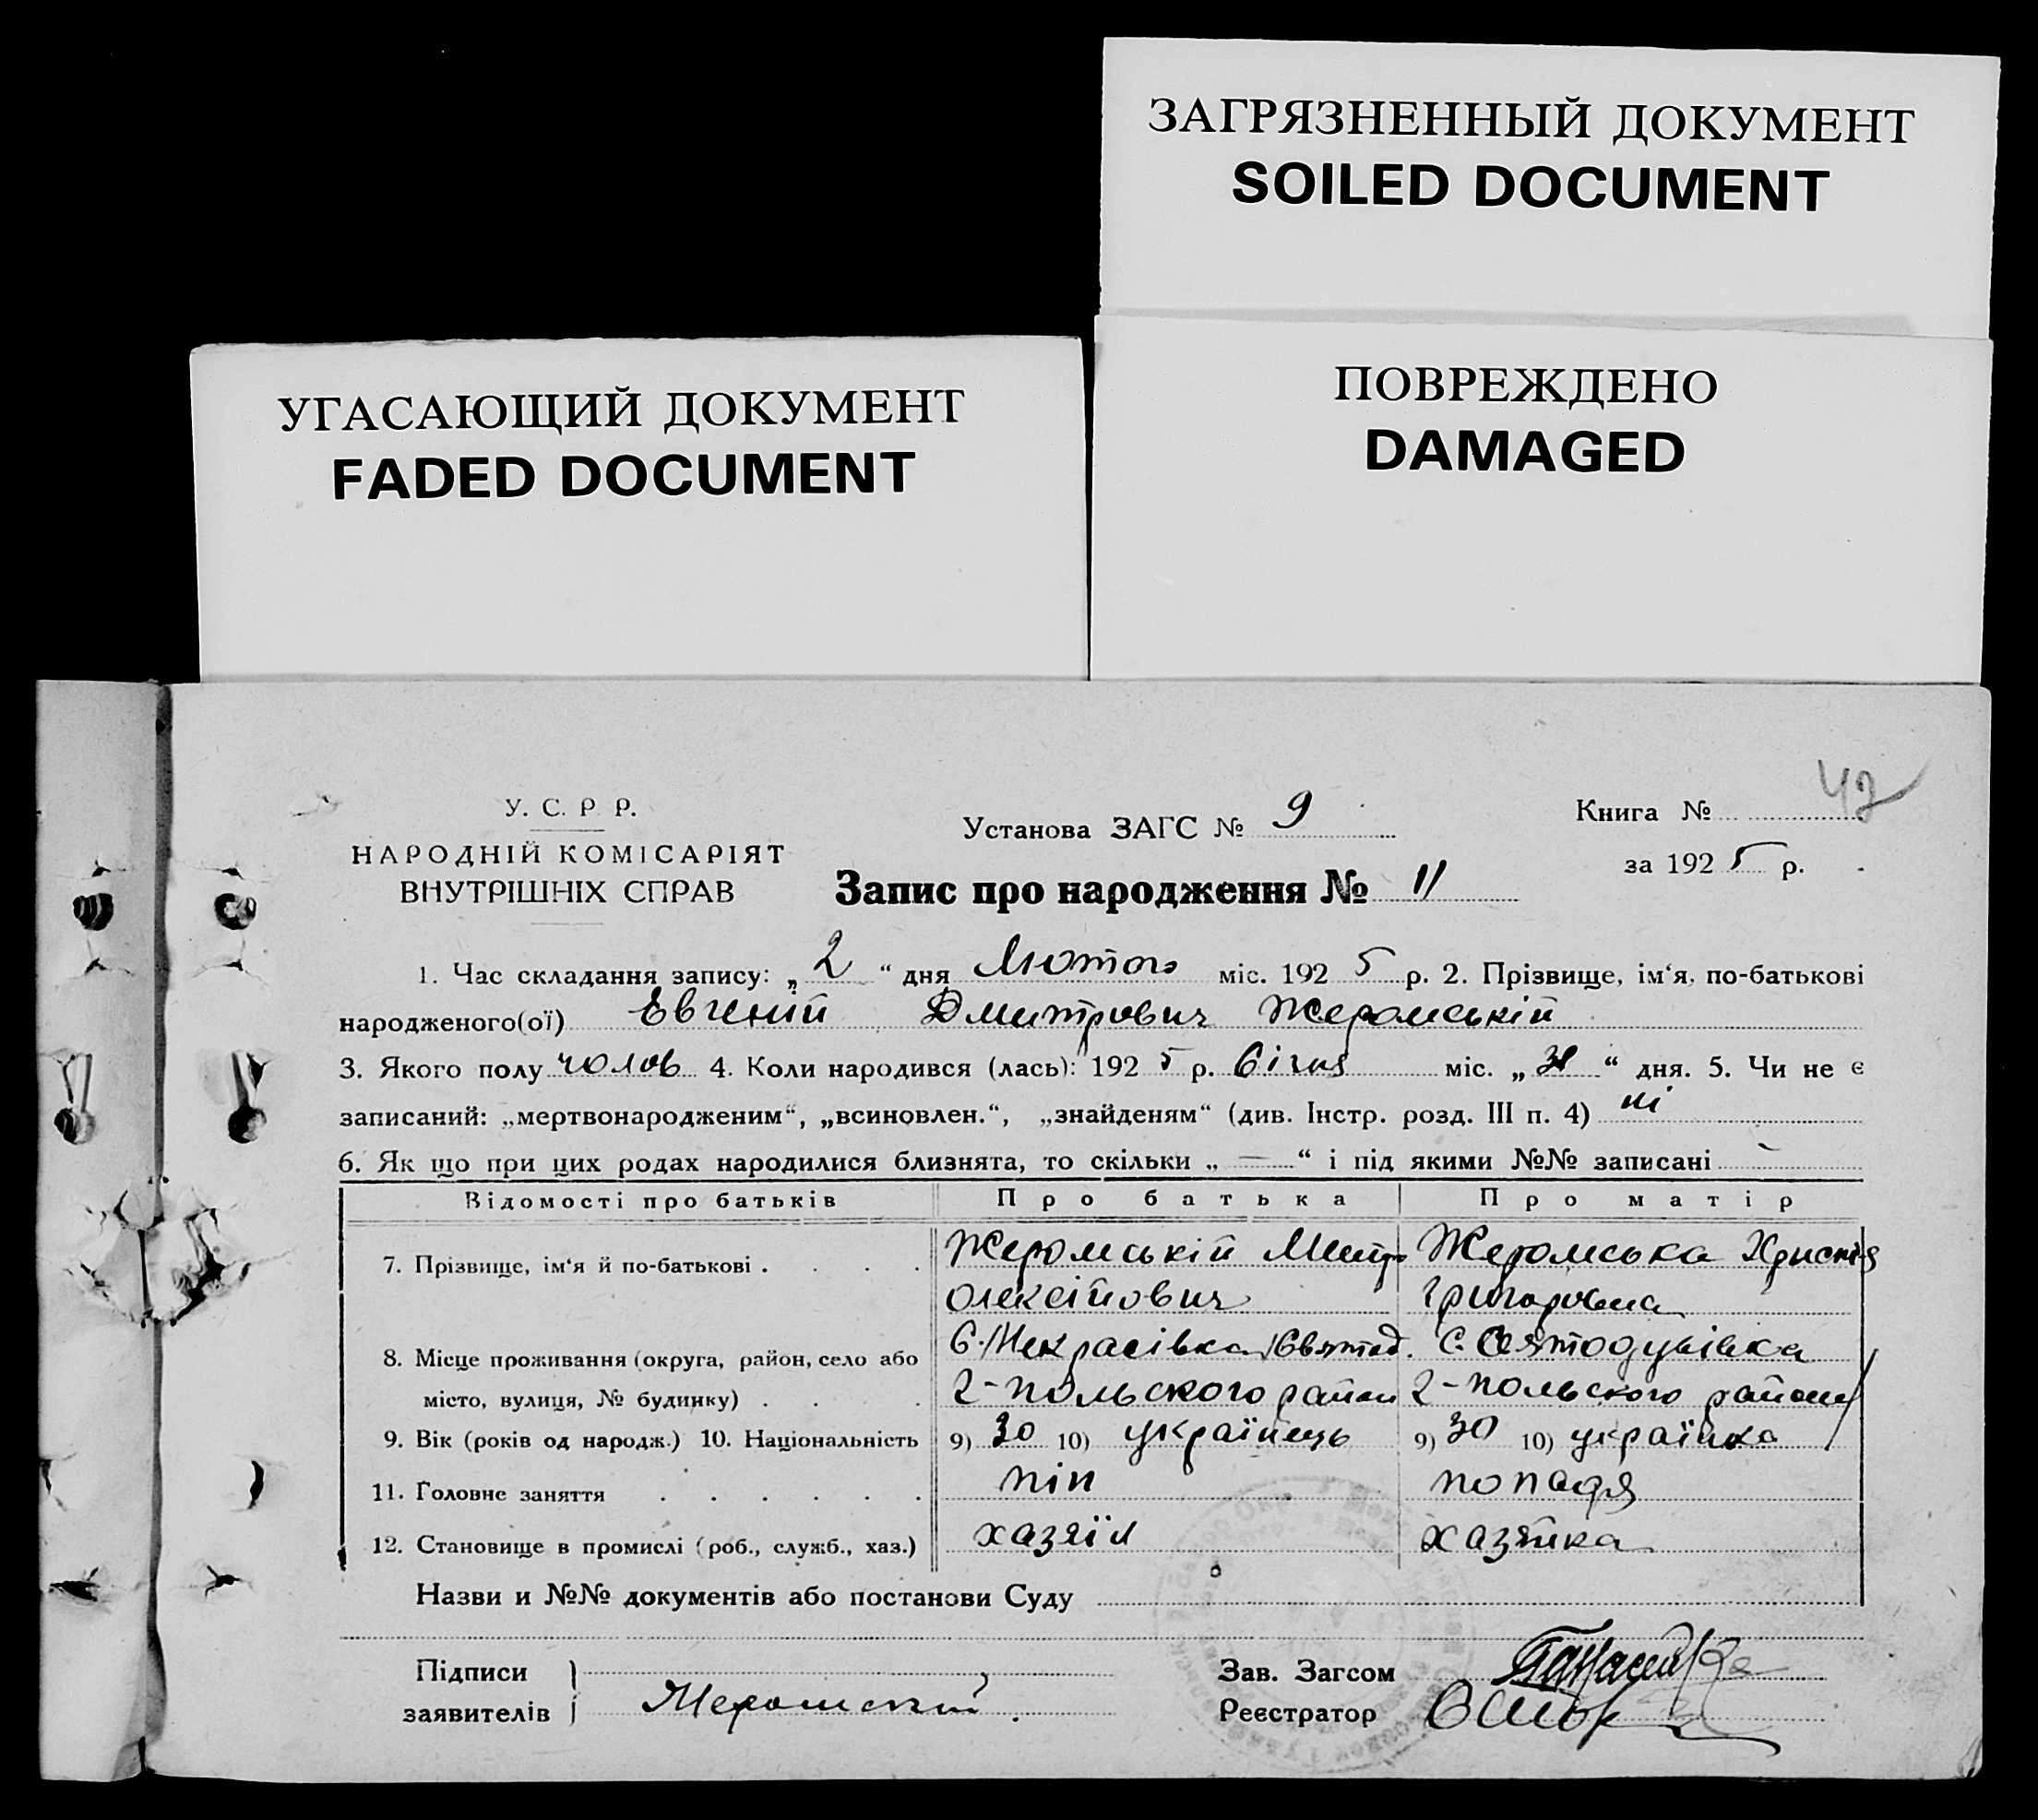 ЗАГРЯЗНЕННЫЙ ДОКУМЕНТ
SOILED DOCUMENT
УГАСАЮЩИЙ ДОКУМЕНТ
FADED DOCUMENT
ПОВРЕЖДЕНО
DAMAGED
42
У. С. Р Р.
НАРОДНІЙ КОМІСАРІЯТ
ВНУТРІШНІХ СПРАВ
Установа ЗАГС № 9
Книга №
за 1925 р.
Запис про народження № 11
1. Час складання запису: „2“ дня Лютого міс. 1925 р. 2. Прізвище, ім‘я, по-батькові
народженого(ої) Евгеній Дмитрович Жеромській
3. Якого полу чолов 4. Коли народився (лась): 1925 р. Січня міс. „31“ дня. 5. Чи не є
записаний: „мертвонародженим“, „всиновлен.“, „знайденям“ (див. Інстр. розд. III п. 4) ні
6. Як що при цих родах народилися близнята, то скільки „ — “ і під якими №№ записані —
Відомості про батьків Про батька Про матір
7. Прізвище, ім‘я й по-батькові . . . . Жеромській Митро Жеромська Христія
Олексійович Григоровна
8. Місце проживання (округа, район, село або С. Некрасівка /Святод. С. Святодухівка
місто, вулиця, № будинку) . . . 2-польского район 2-польского району
9. Вік (років од народж.) 10. Національність 9) 30 10) українець 9) 30 10) українка
11. Головне заняття . . . . . . піп попадя
12. Становище в промислі (роб., служб., хаз.) хазяїн хазяйка
Назви и №№ документів або постанови Суду
Підписи
заявителів Жеромский
Зав. Загсом
Реєстратор